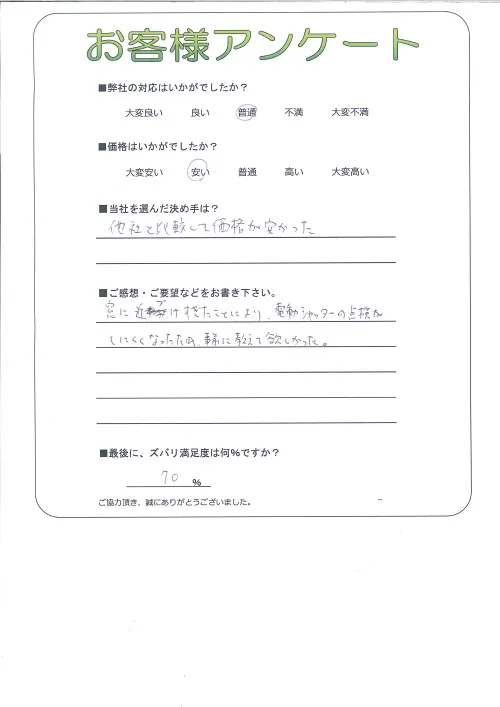 お客様アンケート
■弊社の対応はいかがでしたか？
大変良い 良い 普通 不満 大変不満
■価格はいかがでしたか？
大変安い 安い 普通 高い 大変高い
■当社を選んだ決め手は？
他社と比較して価格が安かった
■ご感想・ご要望などをお書き下さい。
窓に近づけ過ぎたことにより、電動シャッターの点検が
しにくくなったため、事前に教えて欲しかった。
■最後に、ズバリ満足度は何％ですか？
70 ％
ご協力頂き、誠にありがとうございました。